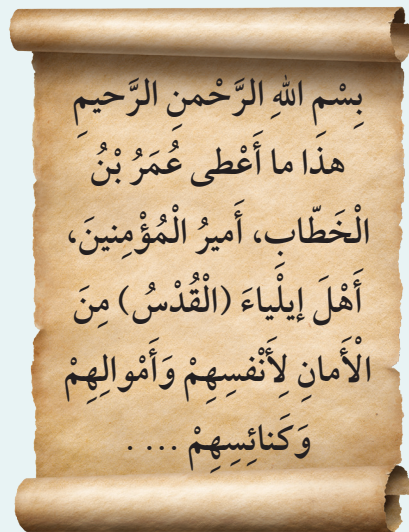 بِسْمِ اللهِ الرَّحْمنِ الرَّحيمِ
هذَا ما أَعْطى عُمَرُ بْنُ
الْخَطّابِ، أَميرُ الْمُؤْمِنينَ،
أَهْلَ إيلْياءَ (الْقُدْسُ) مِنَ
الْأَمانِ لِأَنْفسِهِمْ وَأَمْوالِهِمْ
وَكَنائِسِهِمْ ... .